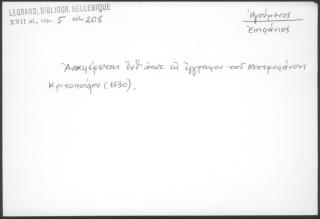 LEGRAND, BIBLIOGR. HELLENIQUE
XVII αἰ., τόμ. 5 σελ. 208
Ἡγούμενος
Ἐπιφάνιος
Ἀναφέρεται ἐνθάπως εἰς ἔγγραφον τοῦ Μητροφάνους
Κριτοπούλου (1630).